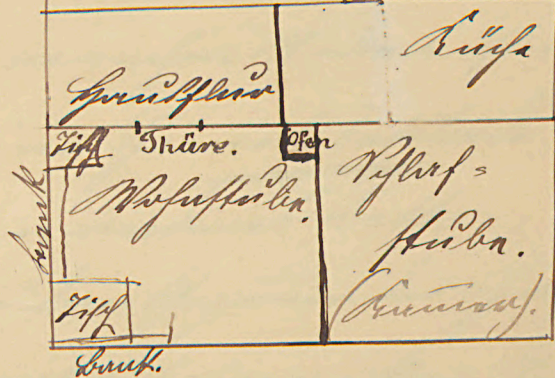 Küche
Hausflur
Tisch Thüre. Ofen
Wohnstube.
Schlaf=
stube.
(Kammer).
Bank
Tisch
Bank.